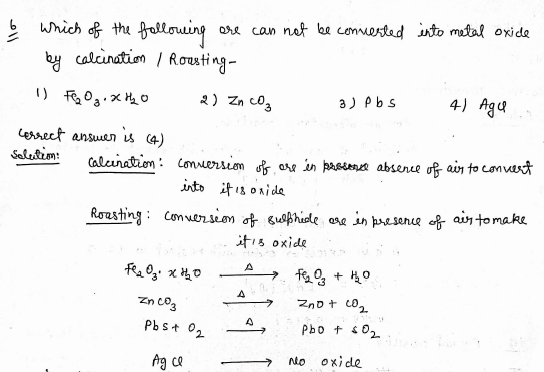 6 Which of the following ore can not be converted into metal oxide
by calcination / Roasting-
1) Fe₂O₃.xH₂O 2) ZnCO₃ 3) PbS 4) AgCl
correct answer is (4)
Solution: Calcination: conversion of ore in absence of air to convert
into it is oxide
Roasting: conversion of sulphide ore in presence of air to make
it is oxide
Fe₂O₃. xH₂O Δ→ Fe₂O₃ + H₂O
ZnCO₃ Δ→ ZnO + CO₂
PbS + O₂ Δ→ PbO + SO₂
AgCl → No oxide